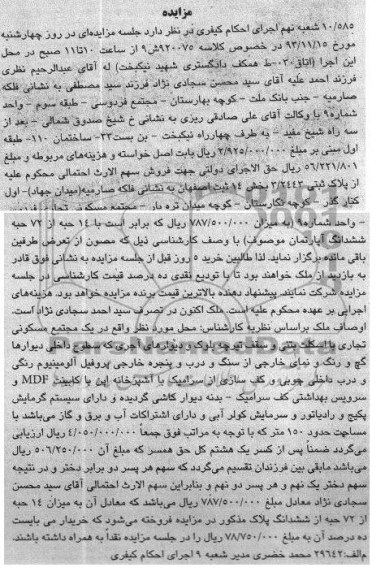 مزایده
۱۰/۵۸۵ شعبه نهم اجرای احکام کیفری در نظر دارد جلسه مزایده‌ای در روز چهارشنبه
مورخ ۹۳/۱۱/۱۵ در خصوص کلاسه ۹۲۰۰۷۵ش۹ از ساعت ۱۰تا۱۱ صبح در محل
این اجرا (اتاق۰۳۰-ط همکف دادگستری شهید نیکبخت) له آقای عبدالرحیم نظری
فرزند احمد علیه آقای سید محسن سجادی نژاد فرزند سید مصطفی به نشانی فلکه
صارمیه - جنب بانک ملت - کوچه بهارستان - مجتمع فردوسی - طبقه سوم - واحد
شماره۹ با وکالت آقای علی صادقی ریزی به نشانی خ شیخ صدوق شمالی - بعد از
سه راه شیخ مفید - به طرف چهارراه نیکبخت - بن بست۲۳- ساختمان ۱۱۰- طبقه
اول مبنی بر مبلغ ۳/۹۲۵/۰۰۰/۰۰۰ ریال بابت اصل خواسته و هزینه‌های مربوطه و مبلغ
۵۶/۲۲۱/۸۰۱ ریال حق الاجرای دولتی جهت فروش سهم الارث احتمالی محکوم علیه
از پلاک ثبتی ۳/۲۴۴۳ بخش ۱۴ ثبت اصفهان به نشانی فلکه صارمیه(میدان جهاد)- اول
کنار گذر - کوچه نگارستان - کوچه میدان تره بار - مجتمع مسکونی تجاری
- واحد شماره۹ (به میزان ۷۸۷/۵۰۰/۰۰۰ ریال که برابر است با ۱۴ حبه از ۷۲ حبه
ششدانگ آپارتمان موصوف) با وصف کارشناسی ذیل که مصون از تعرض طرفین
باقی مانده برگزار نماید. لذا طالبین خرید ۵ روز قبل از جلسه مزایده به نشانی فوق قادر
به بازدید از ملک خواهند بود تا با تودیع نقدی ده درصد قیمت کارشناسی در جلسه
مزایده شرکت نمایند. پیشنهاد دهنده بالاترین قیمت برنده مزایده خواهد بود. هزینه‌های
اجرایی بر عهده محکوم علیه است. ملک اکنون در تصرف سید احمد سجادی نژاد است.
اوصاف ملک براساس نظریه کارشناس: محل مورد نظر واقع در یک مجتمع مسکونی
تجاری با اسکلت بتنی و سقف تیرچه بلوک و دیوارهای آجری که سطوح داخلی دیوارها
گچ و رنگ و نمای خارجی از سنگ و درب و پنجره خارجی پروفیل آلومینیوم رنگی
و درب داخلی چوبی و کف سازی از سرامیک با آشپزخانه اپن با کابینت MDF و
سرویس بهداشتی کف سرامیک - بدنه دیوار کاشی گردیده و دارای سیستم گرمایش
پکیج و رادیاتور و سرمایش کولر آبی و دارای اشتراکات آب و برق و گاز می‌باشد با
مساحت حدود ۱۵۰ متر که با توجه به مراتب فوق جمعاً ۴/۰۵۰/۰۰۰/۰۰۰ ریال ارزیابی
می‌گردد ضمناً پس از کسر یک هشتم کل حق همسر که مبلغ آن ۵۰۶/۲۵۰/۰۰۰ ریال
می‌باشد مابقی بین فرزندان تقسیم می‌گردد که سهم هر پسر دو برابر دختر و در نتیجه
سهم دختر یک نهم و هر پسر دو نهم و بنابراین سهم الارث احتمالی آقای سید محسن
سجادی نژاد معادل مبلغ ۷۸۷/۵۰۰/۰۰۰ ریال می‌باشد که معادل آن به میزان ۱۴ حبه
از ۷۲ حبه از ششدانگ پلاک مذکور در مزایده فروخته می‌شود که خریدار می بایست
ده درصد آن به مبلغ ۷۸/۷۵۰/۰۰۰ ریال را در جلسه مزایده نقداً به همراه داشته باشند
م‌الف:۲۹۶۴۲ محمد خضری مدیر شعبه ۹ اجرای احکام کیفری